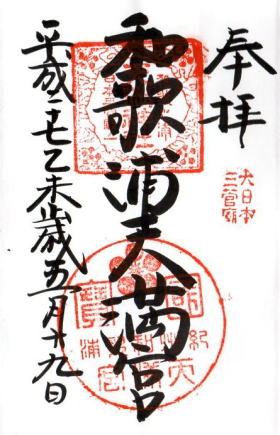 奉拝
大日本
三菅廟
和歌浦天満宮
平成二十七乙未歳五月十九日